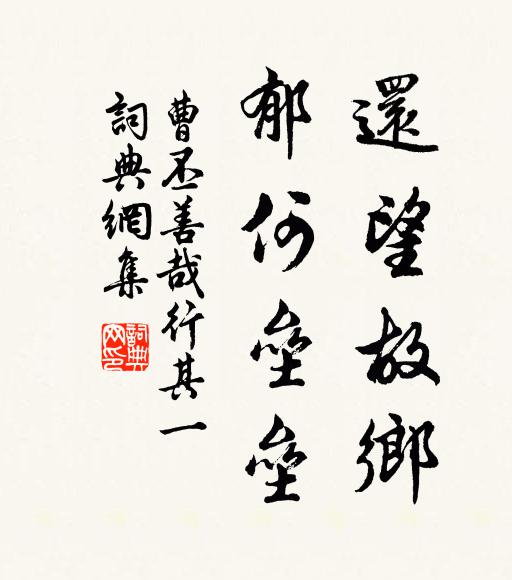 還望故鄉
郁何壘壘
曹丕善哉行其一
詞典網集
詞典
网印